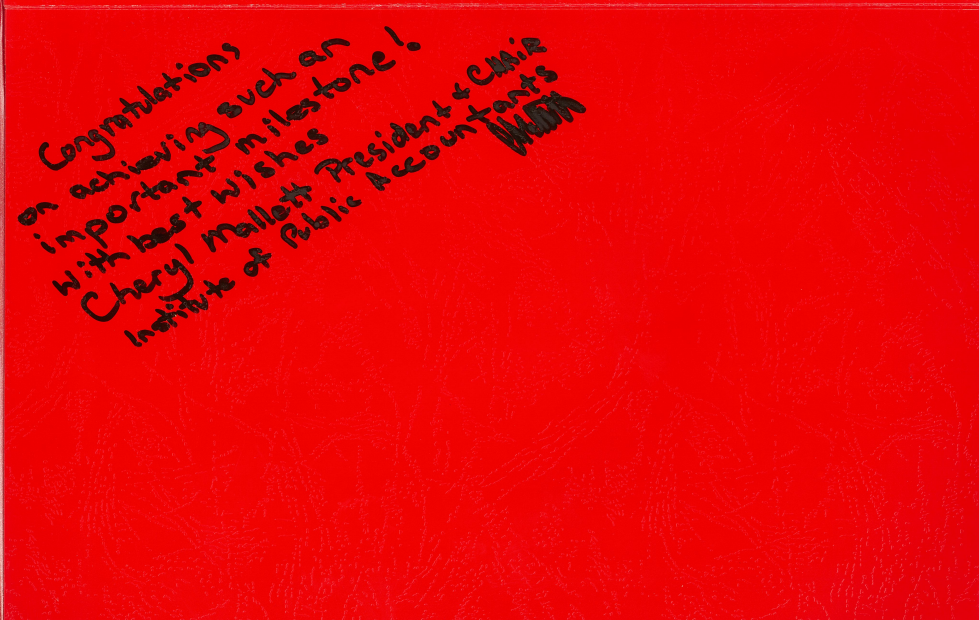 Congratulations
on achieving such an
important milestone!
with best wishes
Cheryl Mallett President + Chair
Institute of Public Accountants